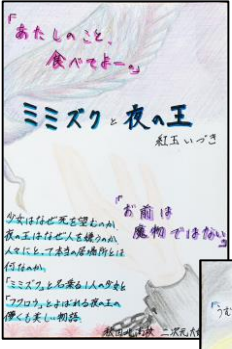 『あたしのこと、
食べてよー。』
ミミズクと夜の王
紅玉いづき
『お前は
魔物ではない』
少女はなぜ死を望むのか
夜の王はなぜ人を嫌うのか
人々にとって本当の居場所とは
何なのか。
「ミミズク」と名乗る1人の少女と
「フクロウ」とよばれる夜の王の
儚くも美しい物語
二次元
うむ